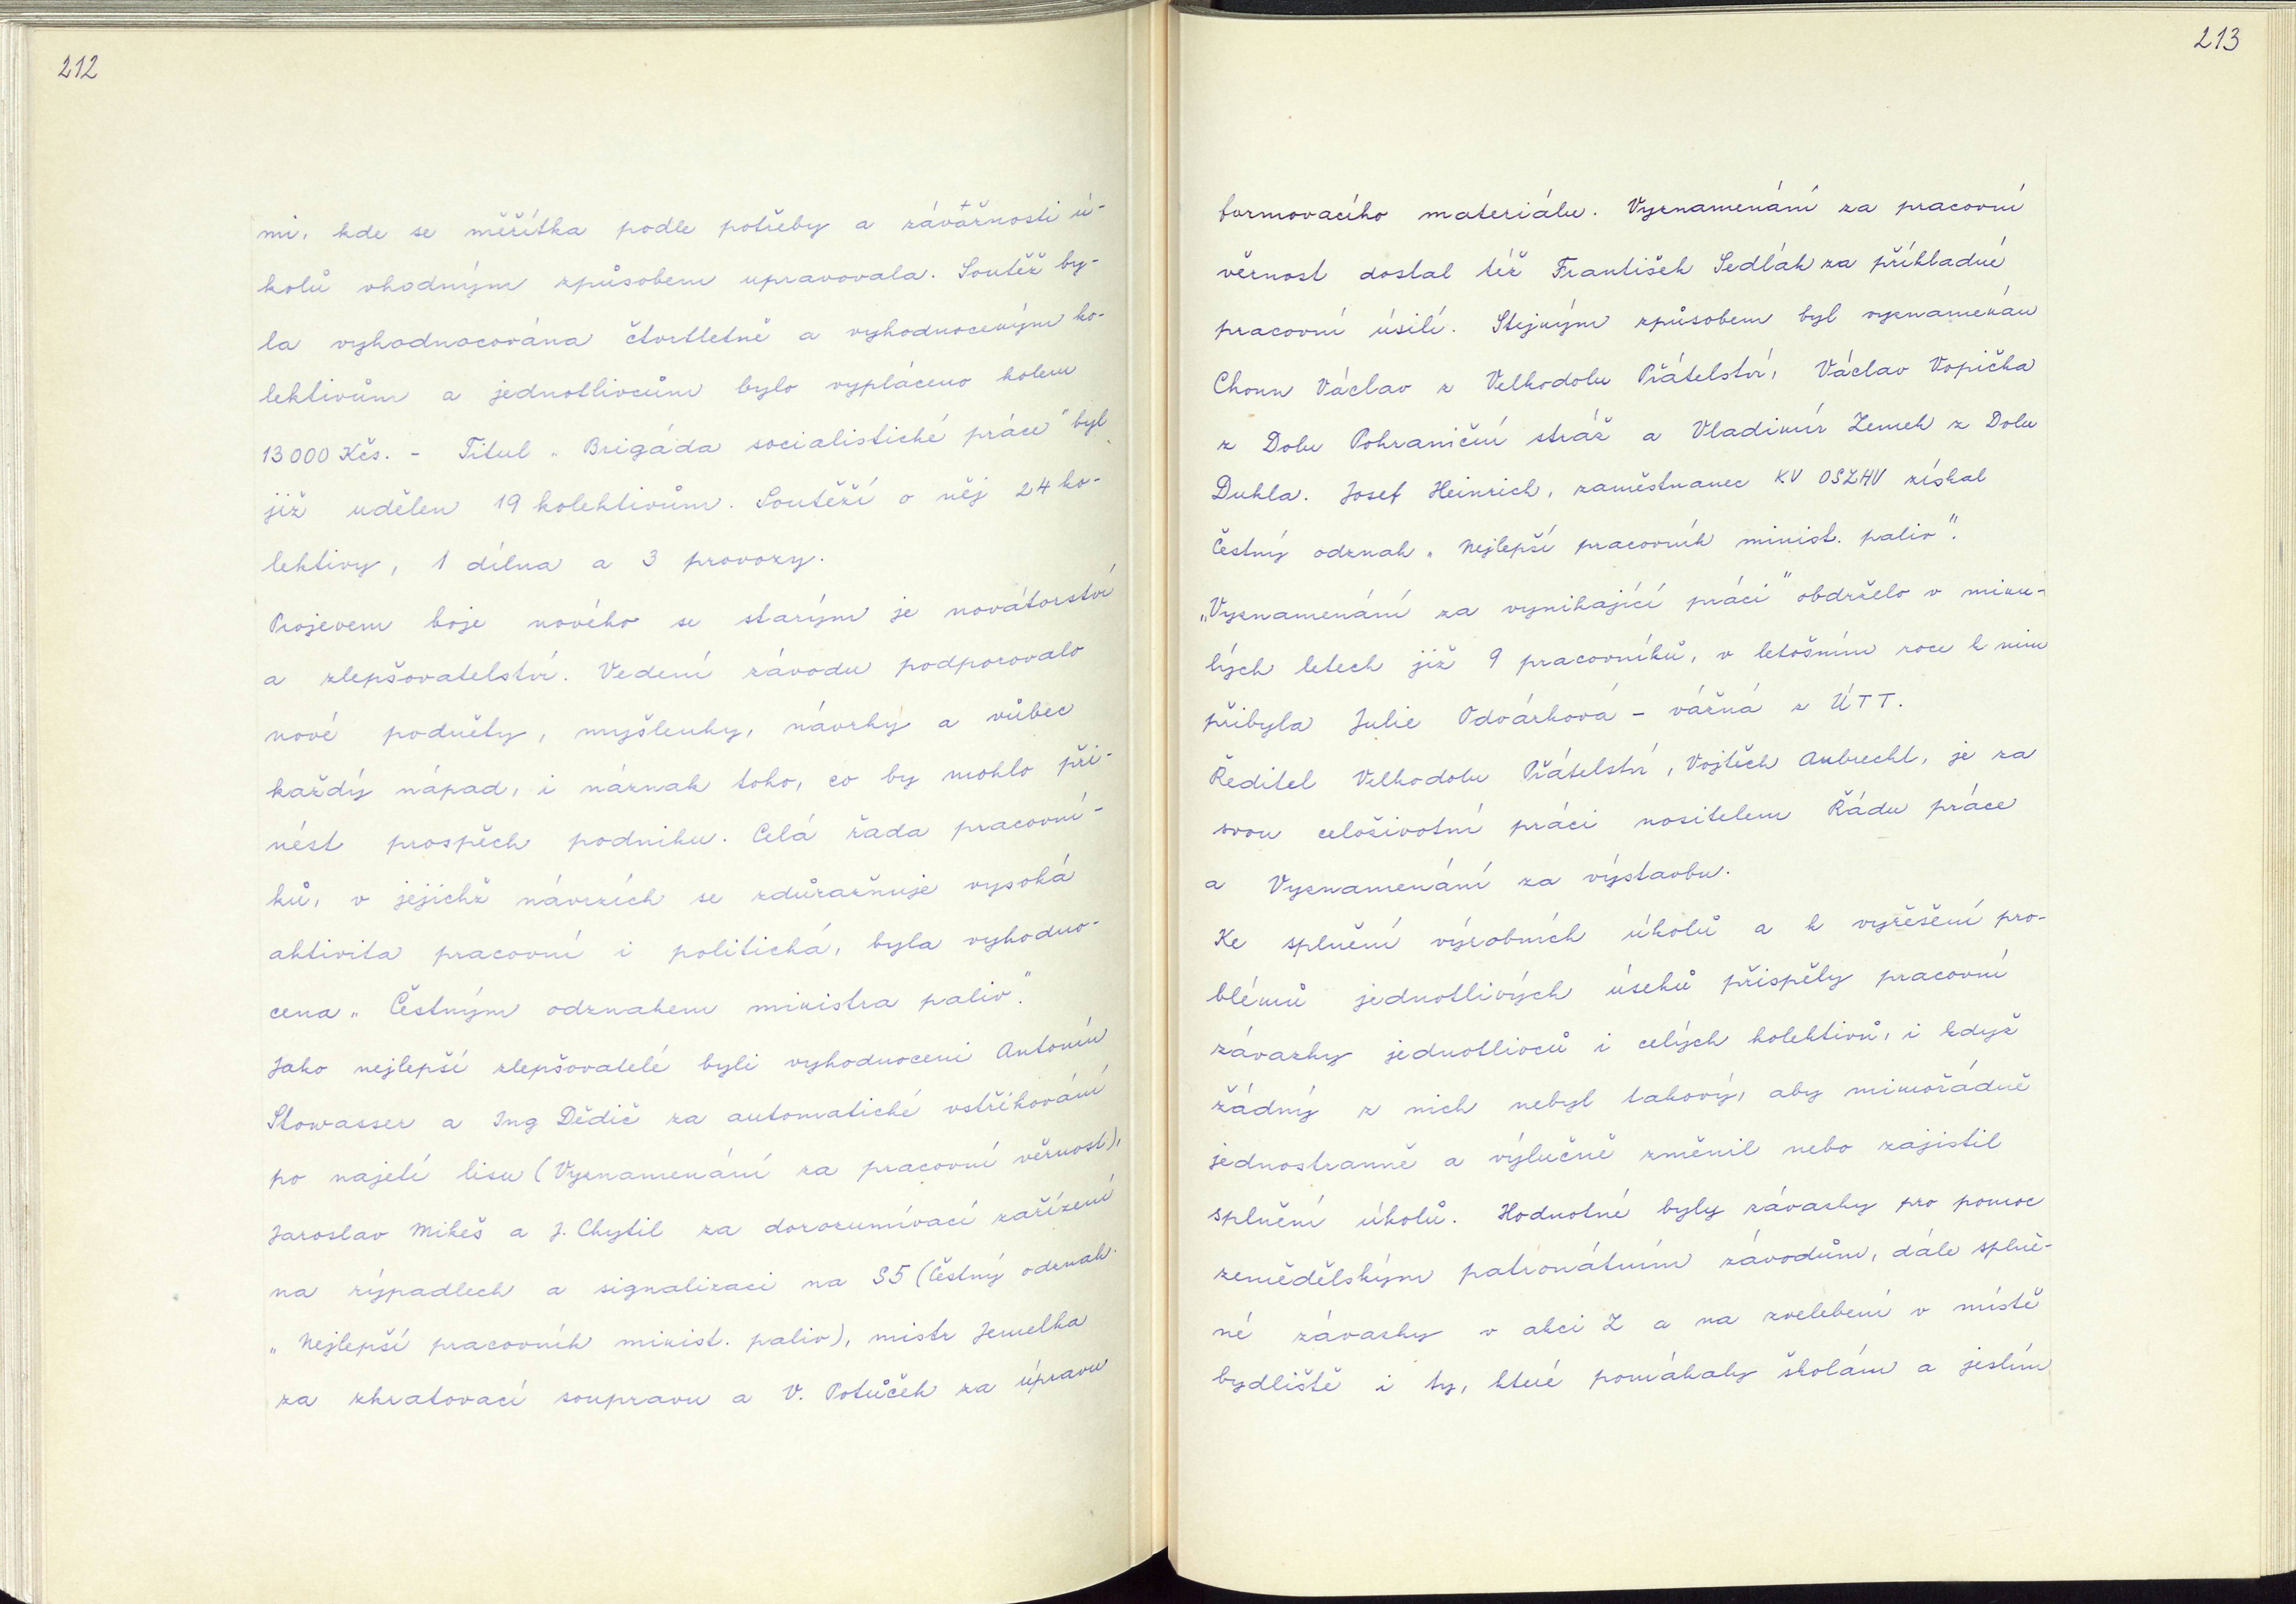 212
mi, kde se měřítka podle potřeby a závažnosti ú-
kolů vhodným způsobem upravovala. Soutěž by-
la vyhodnocována čtvrtletně a vyhodnoceným ko-
lektivům a jednotlivcům bylo vypláceno kolem
13 000 Kčs. - Titul „Brigáda socialistické práce" byl
již udělen 19 kolektivům. Soutěží o něj 24 ko-
lektivy, 1 dílna a 3 provozy.
Projevem boje nového se starým je novátorství
a zlepšovatelství. Vedení závodu podporovalo
nové podněty, myšlenky, návrhy a vůbec
každý nápad, i náznak toho, co by mohlo při-
nést prospěch podniku. Celá řada pracovní-
ků, v jejichž návrzích se zdůrazňuje vysoká
aktivita pracovní i politická, byla vyhodno-
cena „Čestným odznakem ministra paliv".
Jako nejlepší zlepšovatelé byli vyhodnoceni Antonín
Stowasser a Ing Dědič za automatické vstřikování
po najetí lisu (Vyznamenání za pracovní věrnost),
Jaroslav Mikeš a J. Chytil za dorozumívací zařízení
na rýpadlech a signalizaci na S5 (Čestný odznak
„Nejlepší pracovník minist. paliv), mistr Jemelka
za zkratovací soupravu a V. Potůček za úpravu
213
formovacího materiálu. Vyznamenání za pracovní
věrnost dostal též František Sedlák za příkladné
pracovní úsilí. Stejným způsobem byl vyznamenán
Chonn Václav z Velkodolu Přátelství, Václav Vopička
z Dolu Pohraniční stráž a Vladimír Zemek z Dolu
Dukla. Josef Heinrich, zaměstnanec KV OSZHV získal
Čestný odznak „Nejlepší pracovník minist. paliv".
„Vyznamenání za vynikající práci" obdrželo v minu-
lých letech již 9 pracovníků, v letošním roce k nim
přibyla Julie Odvárková - vážná z ÚTT.
Ředitel Velkodolu Přátelství, Vojtěch Aubrecht, je za
svou celoživotní práci nositelem Řádu práce
a Vyznamenání za výstavbu.
Ke splnění výrobních úkolů a k vyřešení pro-
blémů jednotlivých úseků přispěly pracovní
závazky jednotlivců i celých kolektivů, i když
žádný z nich nebyl takový, aby mimořádně
jednostranně a výlučně změnil nebo zajistil
splnění úkolů. Hodnotné byly závazky pro pomoc
zemědělským patronátním závodům, dále splně-
né závazky v akci Z a na zvelebení v místě
bydliště i ty, které pomáhaly školám a jeslím